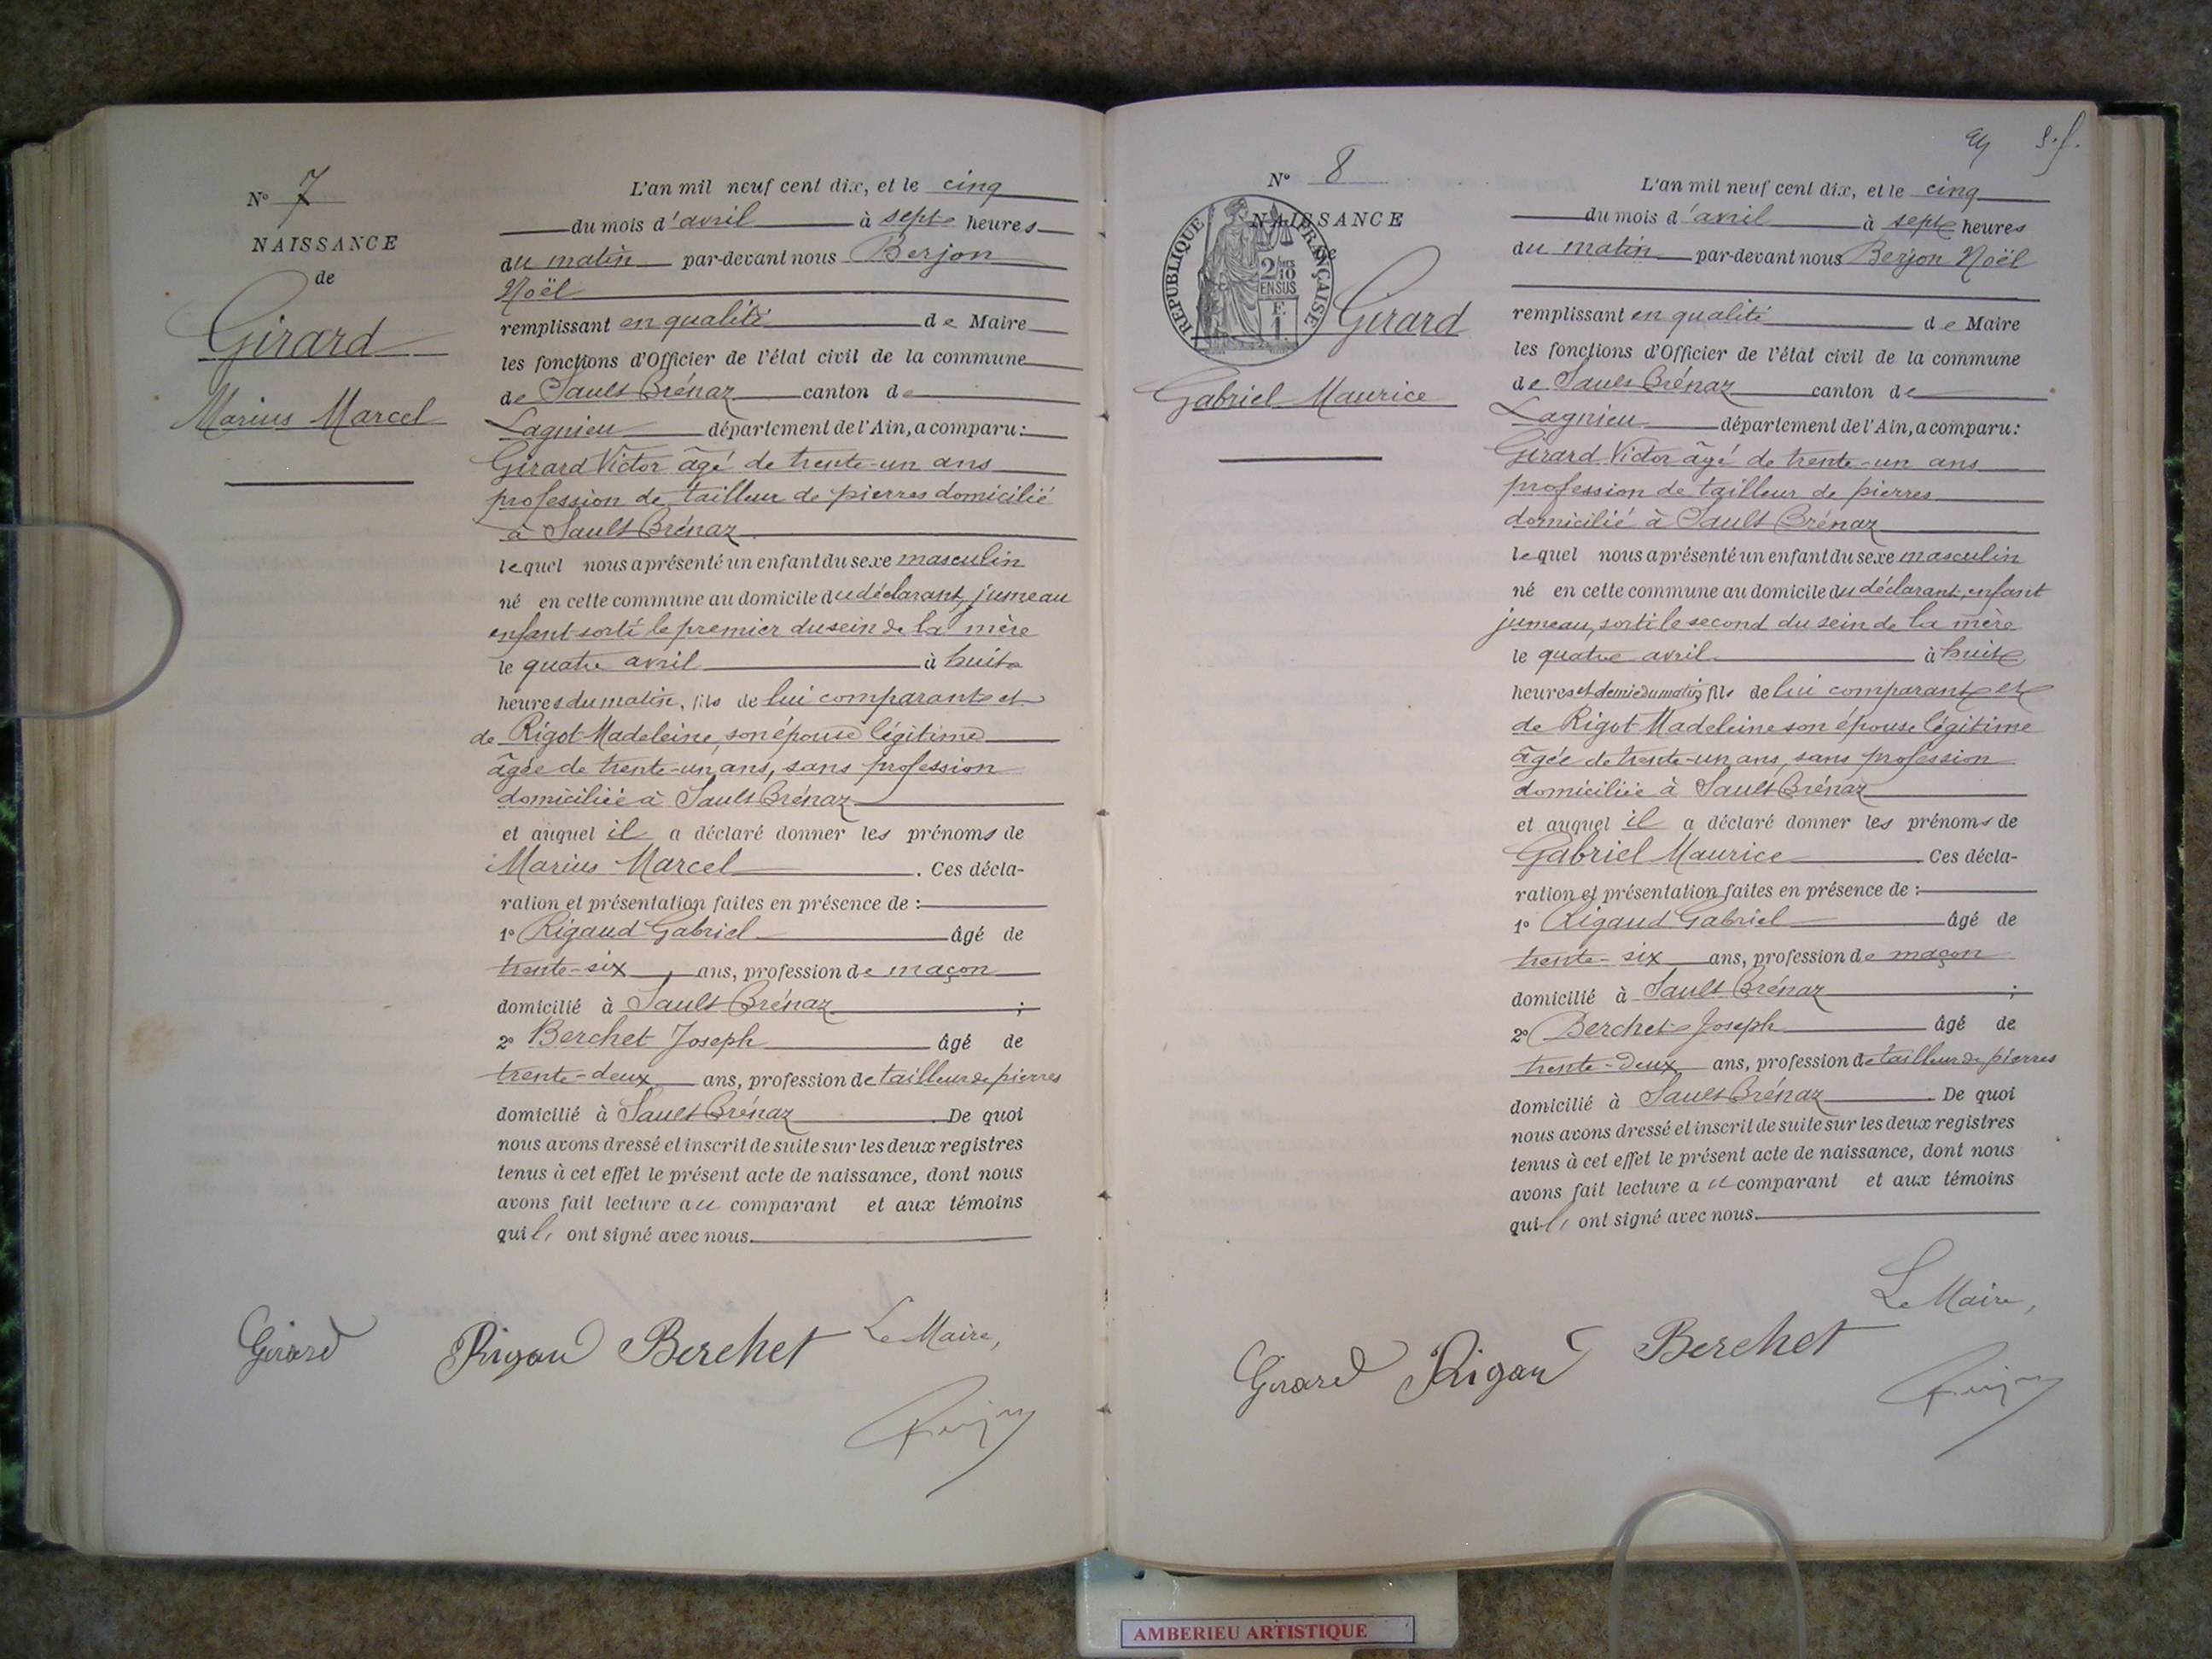 N° 7
NAISSANCE
de
Girard
Marius Marcel
L'an mil neuf cent dix, et le cinq
du mois d'avril à sept heures
du matin par-devant nous Berjon
Noël
remplissant en qualité de Maire
les fonctions d'Officier de l'état civil de la commune
de Sault Brénaz canton de
Lagnieu département de l'Ain, a comparu :
Girard Victor âgé de trente-un ans
profession de tailleur de pierres domicilié
à Sault Brénaz
lequel nous a présenté un enfant du sexe masculin
né en cette commune au domicile du déclarant, jumeau
enfant sorti le premier du sein de la mère
le quatre avril à huit
heures du matin, fils de lui comparant et
de Rigot Madeleine, son épouse légitime
âgée de trente-un ans, sans profession
domiciliée à Sault Brénaz
et auquel il a déclaré donner les prénoms de
Marius Marcel . Ces décla-
ration et présentation faites en présence de :
1° Rigaud Gabriel âgé de
trente-six , ans, profession de maçon
domicilié à Sault Brénaz ;
2° Berchet Joseph âgé de
trente-deux ans, profession de tailleur de pierres
domicilié à Sault Brénaz . De quoi
nous avons dressé et inscrit de suite sur les deux registres
tenus à cet effet le présent acte de naissance, dont nous
avons fait lecture au comparant et aux témoins
qui ont signé avec nous.
Girard Rigau Berchet Le Maire,
N° 8
NAISSANCE
de
RÉPUBLIQUE FRANÇAISE
2/10
EN SUS
Girard
Gabriel Maurice
L'an mil neuf cent dix, et le cinq
du mois d'avril à sept heures
du matin par-devant nous Berjon Noël
remplissant en qualité de Maire
les fonctions d'Officier de l'état civil de la commune
de Sault Brénaz canton de
Lagnieu département de l'Ain, a comparu :
Girard Victor âgé de trente-un ans
profession de tailleur de pierres
domicilié à Sault Brénaz
lequel nous a présenté un enfant du sexe masculin
né en cette commune au domicile du déclarant, enfant
jumeau, sorti le second du sein de la mère
le quatre avril à huit
heures et demie du matin, fils de lui comparant et
de Rigot Madeleine son épouse légitime
âgée de trente-un ans, sans profession
domiciliée à Sault Brénaz
et auquel il a déclaré donner les prénoms de
Gabriel Maurice . Ces décla-
ration et présentation faites en présence de :
1° Rigaud Gabriel âgé de
trente-six ans, profession de maçon
domicilié à Sault Brénaz ;
2° Berchet Joseph âgé de
trente-deux ans, profession de tailleur de pierres
domicilié à Sault Brénaz . De quoi
nous avons dressé et inscrit de suite sur les deux registres
tenus à cet effet le présent acte de naissance, dont nous
avons fait lecture au comparant et aux témoins
qui ont signé avec nous.
Le Maire,
Girard Rigau Berchet
AMBERIEU ARTISTIQUE